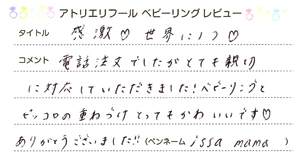 アトリエリフール ベビーリング レビュー
タイトル 感激♡世界に1つ♡
コメント 電話注文でしたがとても親切
に対応していただきました!ベビーリングと
ピッコロの重ねづけとってもかわいいです♡
ありがとうございました!!(ペンネーム issa mama )